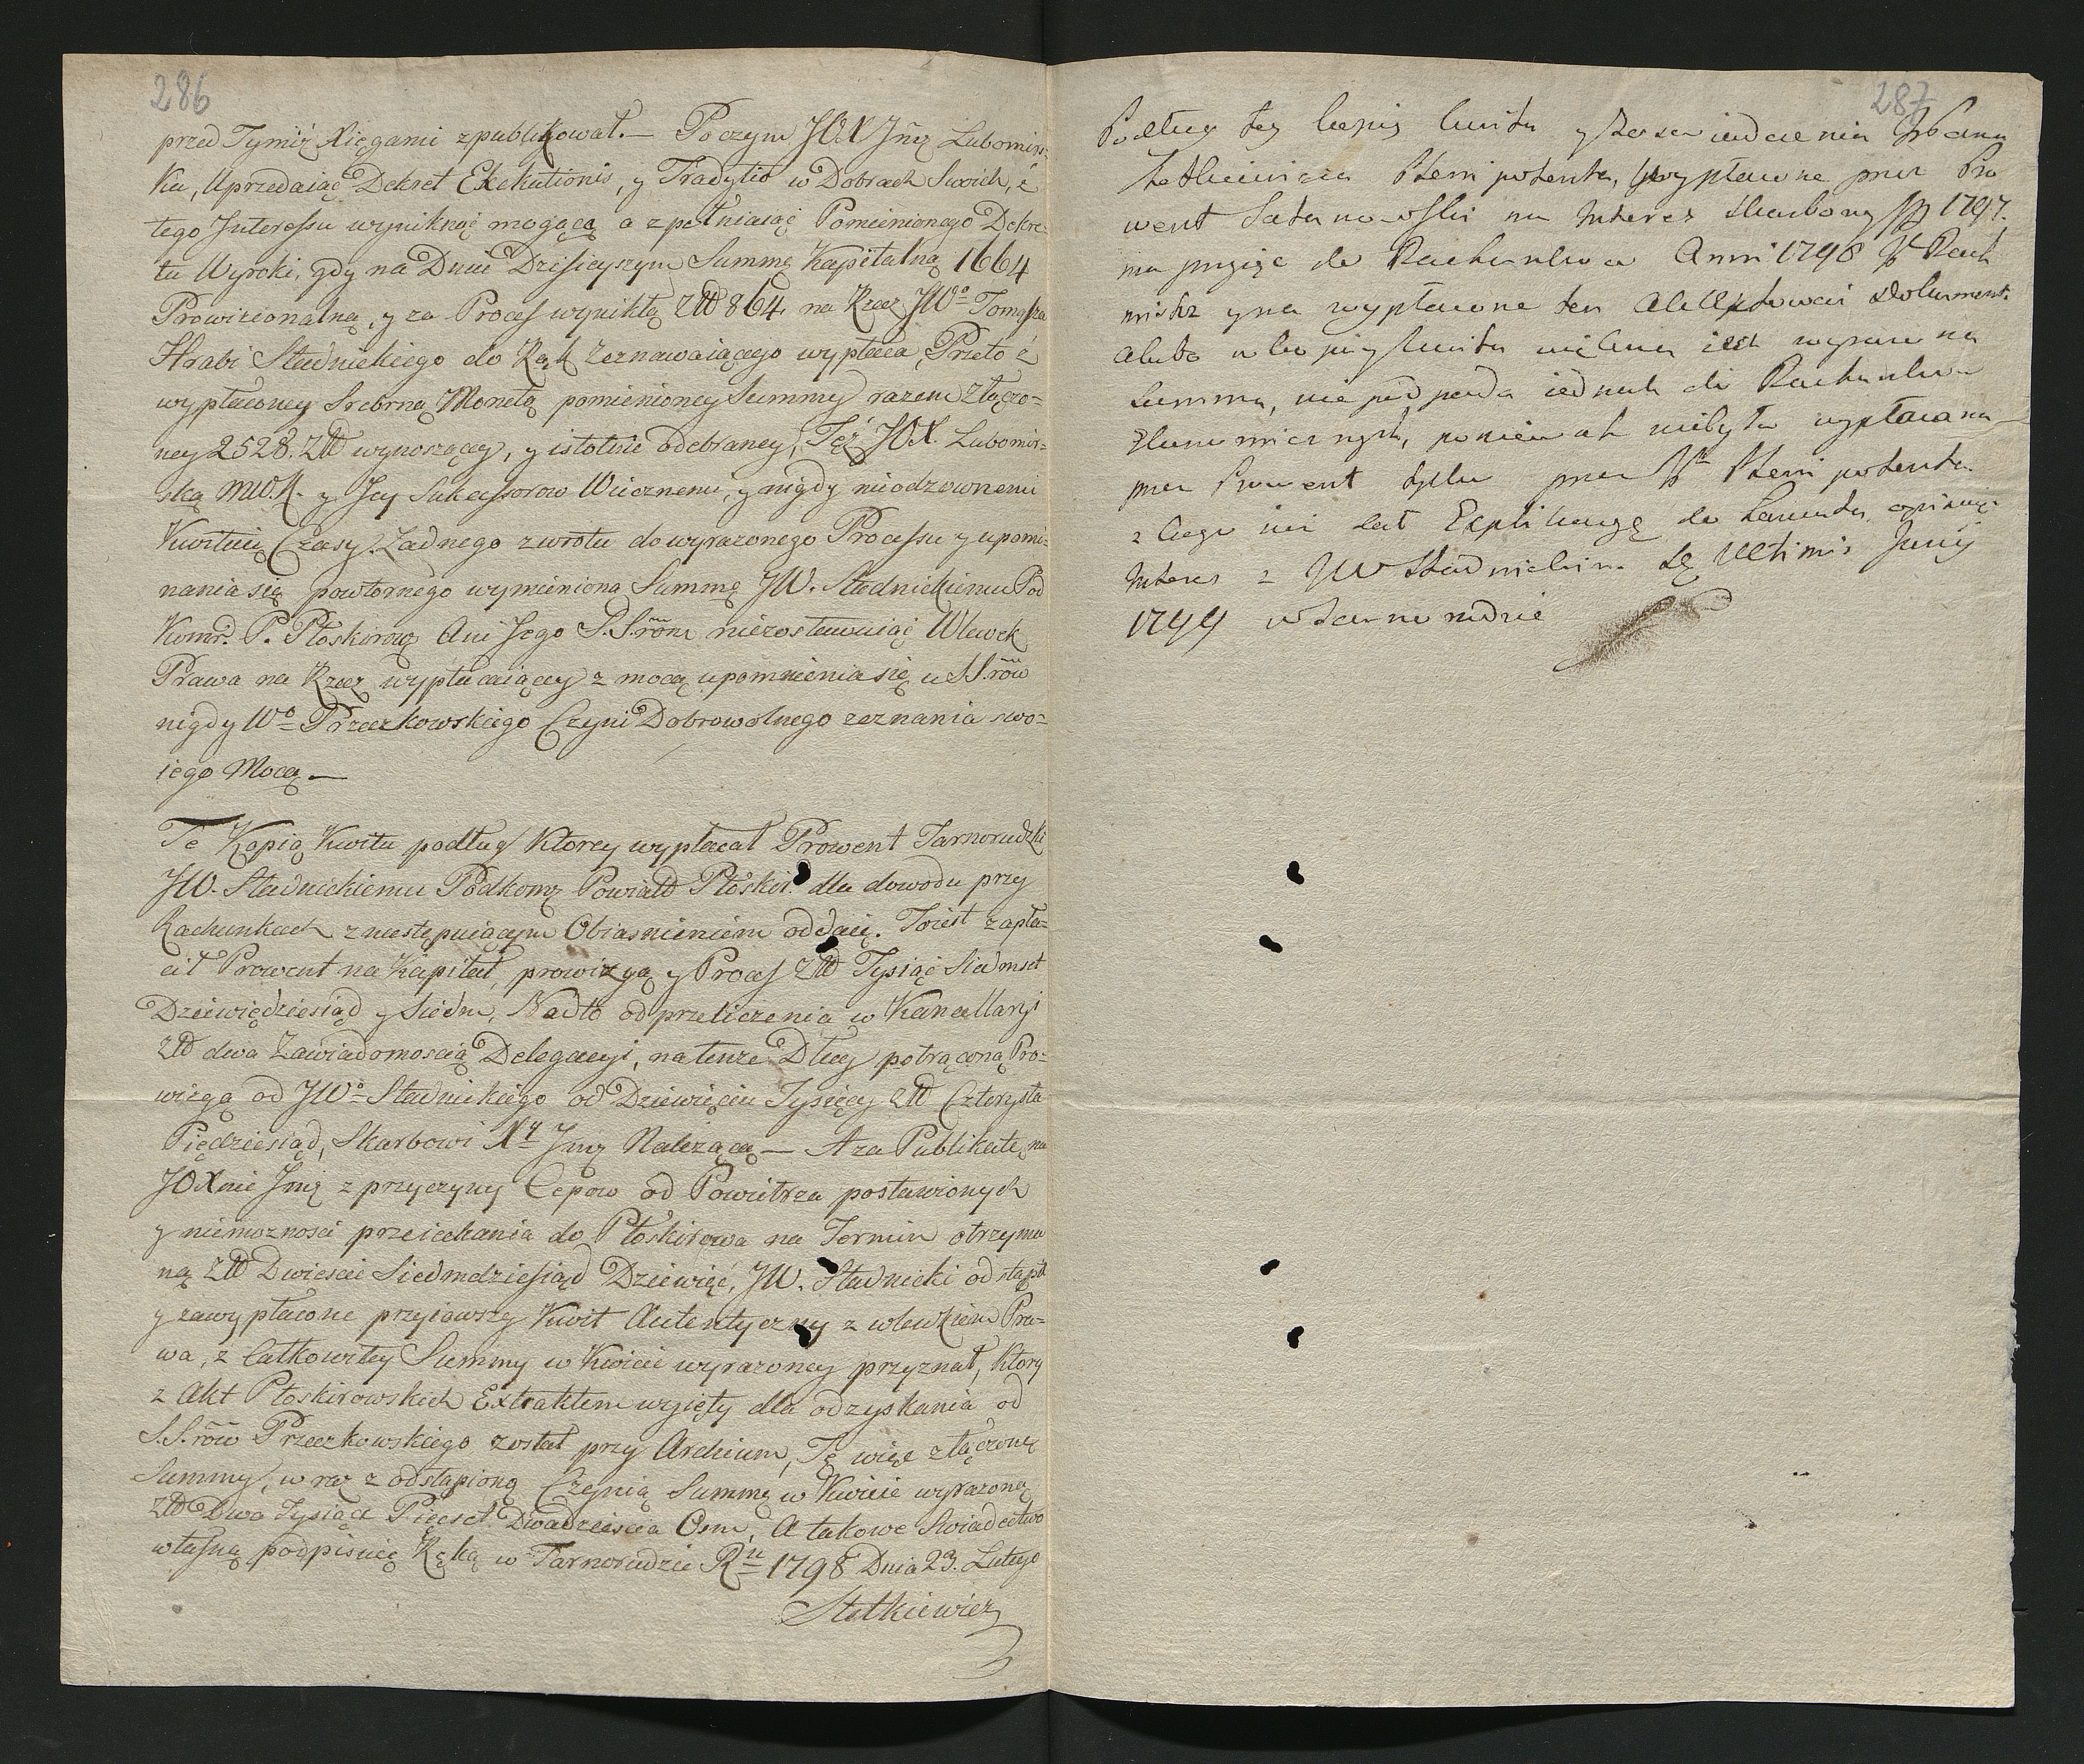 286
przed Tymiż Xięgami zpublikował. — Poczym JOX Jmć Lubomirs-
ka, Uprzedaiąc Dekret Exekutionis, y Tradytio w Dobrach Swoich, z
tego Interessu wyniknąć mogącą a zpełniaiąc Pomienionego Dekre-
tu Wyroki, gdy na Dniu Dzisieyszym Summę Kapitalną 1664
Prowizionalną, y za Proces wynikłą Złł 864 na Rzecz JWo Tomasza
Hrabi Stadnickiego do Rąk Zeznawaiącego wypłaca, Przeto z
wypłaconey Srebrną Monetą pomienioney Summy razem złączo-
ney 2528. Złł wynoszącey, y istotnie odebraney, Też JOX. Lubomir-
ską MWK. y Jey Sukcessorow Wiecznemi, y nigdy nieodzownemi
Kwituię Czasy. Żadnego zwrotu do wyrazonego Processu y upomi-
nania się powtornego wymienioną Summę JW. Stadnickiemu Pod
Komrz. P. Płoskirow. Ani Jego S.S.rom niezostawuiąc Wlewek
Prawa na Rzecz wypłacaiącey z mocą upomnienia się u SS.row
nigdy Wo Przeczkowskiego Czyni Dobrowolnego zeznania swo-
iego Mocą —
Te Kopią Kwitu podług Ktorey wypłacał Prowent Tarnorudzki
JW. Stadnickiemu Podkomz Powiatt Płoskir. dla dowodu przy
Rachunkach z następuiącym Obiasnieniem oddaię. Toiest zapła-
cił Prowent na Kapitał, prowizyą y Proces Złł Tysiąc Siedmset
Dziewiędziesiąd y Siedm, Nadto od przeliczenia w Kancellaryi
Złł dwa Zawiadomoscią Delegacyi, na tenże Dług potrąconą Pro-
wizgą od JWo Stadnickiego od Dziewięciu Tysięcy Złł Czterysta
Piędziesiąd, Skarbowi Xy Jmć Nalezącą — A za Publikatę na
JOXnie Jmć z przyczyny Cepow od Powietrza postawionych
y niemoznosci przeiechania do Płoskirowa na Termin otrzyma
ną Złł Dwiescie Siedmdziesiąd Dziewięć, JW. Stadnicki odstąpił
y zawypłacone przyiąwszy Kwit Autentyczny z wlewkiem Pra-
wa, z Całkowitey Summy w Kwicie wyrazoney przyznał, Ktory
z Akt Płoskirowskich Extraktem wzięty dla odzyskania od
S.S.row Przeczkowskiego został przy Archiwum, Te więc złączone
Summy, w raz z odstąpioną Czynią Summę w Kwicie wyrazoną
Złł Dwa Tysiące Pięcset Dwadziescia Osm, A takowe Swiadectwo
własną podpisuię Ręką w Tarnorudzie Ru 1798 Dnia 23. Lutego
Stetkiewicz
287
Podług tey kopij kwitu y zaswiadczenia
Stetkiewicza Plenipotenta, wypłacone przez Pro
went Satanowski na Interes Skarbowy 1797.
ma przyiąc do Rachunkow Anni 1798 Rach
mistrz y na wypłacone ten Dokument.
Alubo w kopiy kwitu iest wyrazona
Summa, nie podpada iednak do Rachunkow
poniewasz niebyła wypłacana
przez Prowent tylko przez Plenipotenta
z czego iui dał Explikacyę do
Interes z JW Stadnickim Dę Ultimis Junij
1799 w Tarnorudzie